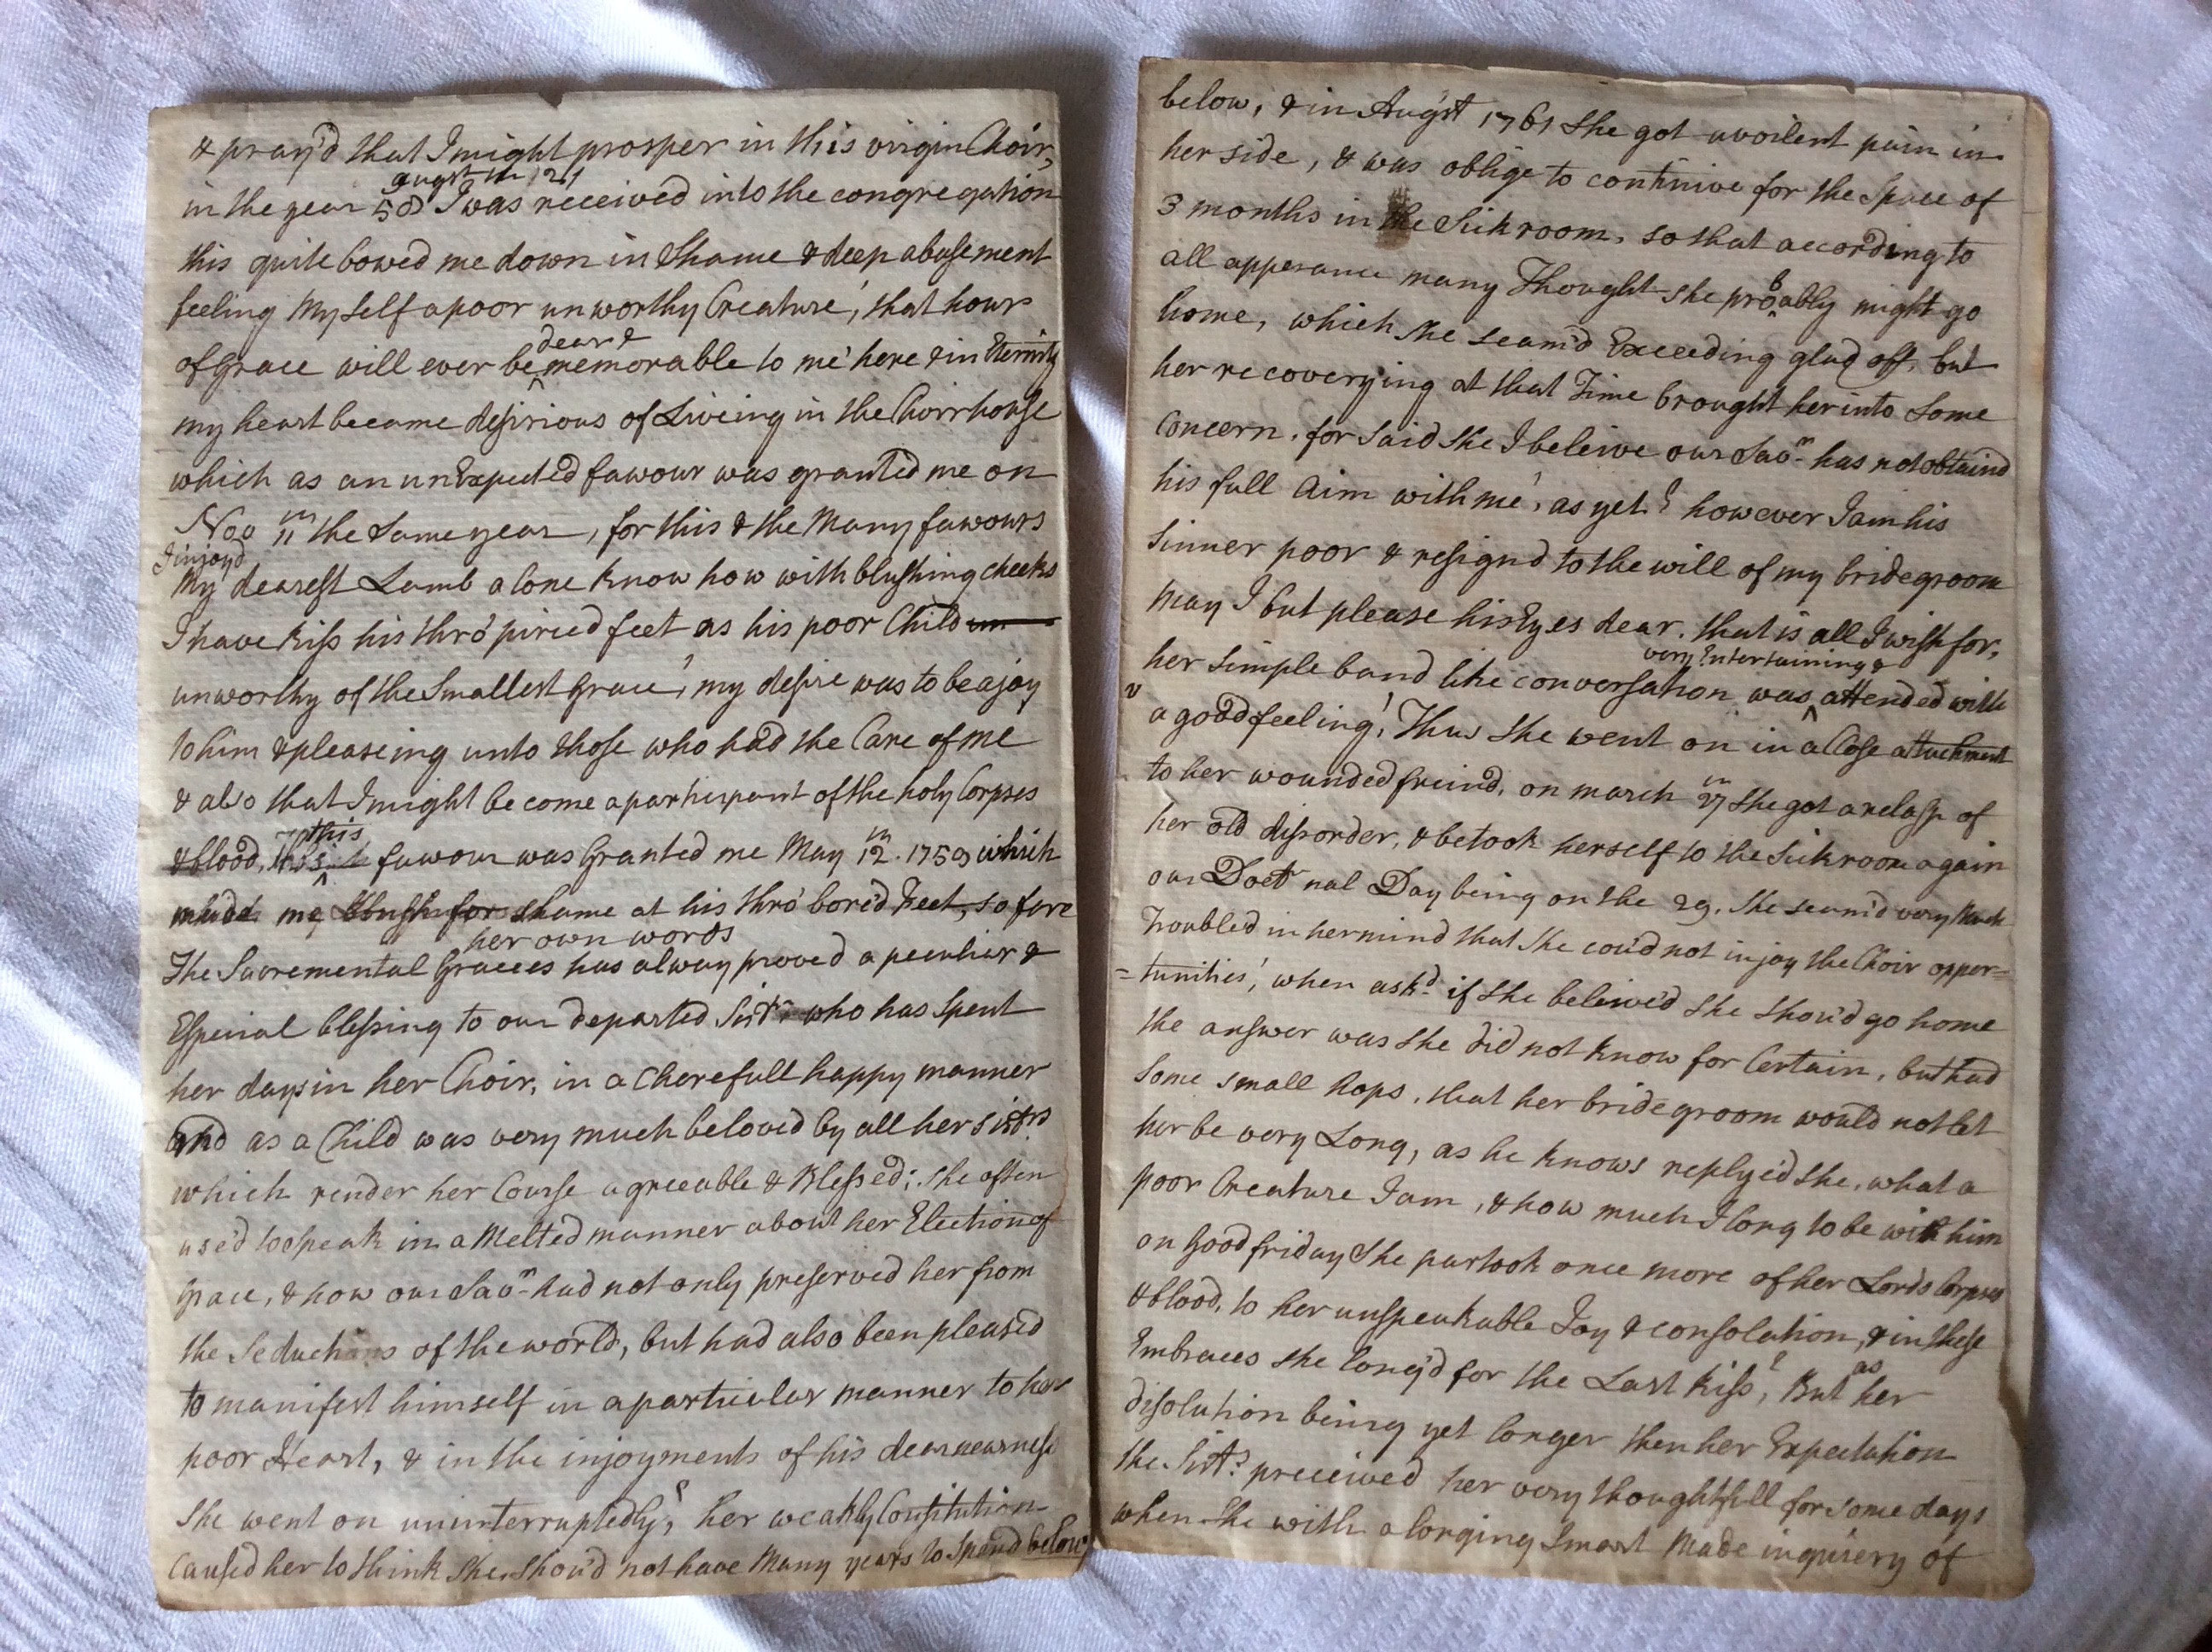 & pray'd that I might prosper in this virgin Choir,
augst th 12
in the year 58 I was received into the congregation
this quite bowed me down in Shame & deep abasement
feeling my Self a poor unworthy Creature, that hour
dear &
of grace will ever be memorable to me here & in Eternity
my heart became desirious of Liveing in the Choirhouse
which as an unExpected favour was granted me on
Nov 11th the Same year, for this & the Many favours
I injoyd
My dearest Lamb alone know how with blushing cheeks
I have Kiss his thro' pirced feet as his poor Child
unworthy of the Smallest Grace, my desire was to be a joy
to him & pleaseing unto those who had the Care of me
& also that I might become a partisipant of the holy Corpses
this
& blood, this favour was Granted me May 12th. 1759 which
made me blush for shame at his thro' bored Feet, so fare
her own words
The Sacremental Graces has alway proved a peculiar &
Especial blessing to our departed Sistr who has Spent
her days in her Choir, in a Cherefull happy manner
and as a Child was very much beloved by all her sistrs
which render her Course agreeable & Blessed; She often
used to Speak in a Melted manner about her Election of
Grace, & how our Savr had not only preserved her from
the Seductions of the world, but had also been pleased
to manifest himself in a particular manner to her
poor Heart, & in the injoyments of his dear nearness
She went on uninterruptedly, her weakly Constitution
Caused her to think She Shou'd not have Many years to Spend below
below, & in Augst 1761 She got a voilent pain in
her side, & was oblige to continive for the Space of
3 months in the Sick room, so that according to
all apperance many Thought she probably might go
home, which she seam'd Exceeding glad off, but
her recoverying at that Time brought her into Some
Concern, for said she I beleive our Savr has not obtaind
his full aim with me, as yet? however I am his
Sinner poor & resignd to the will of my bridegroom
may I but please his Eyes dear, that is all I wish for,
very Entertaining &
her simple band like conversation was attended with
a good feeling, Thus she went on in a Close attachment
to her wounded freind, on march 27th she got a relaps of
her old dissorder, & betook herself to the Sick room again
our Doctr nal Day being on the 29, She seam'd very Much
Troubled in her mind that she cou'd not injoy the Choir oppor=
=tunities, when ask'd if she beleived she shou'd go home
the answer was she did not know for Certain, but had
Some small hops, that her bridegroom would not let
her be very Long, as he knows reply'd she, what a
poor Creature I am, & how much I long to be with him
on Good friday She partook once more of her Lords Corpses
& blood, to her unspeakable Joy & consolation, & in these
Embraces she long'd for the Last Kiss, But as her
disolution being yet longer then her Expectation
the Sistrs preceived her very thoughtfull for some days
when she with a longing Smart Made inquiery of